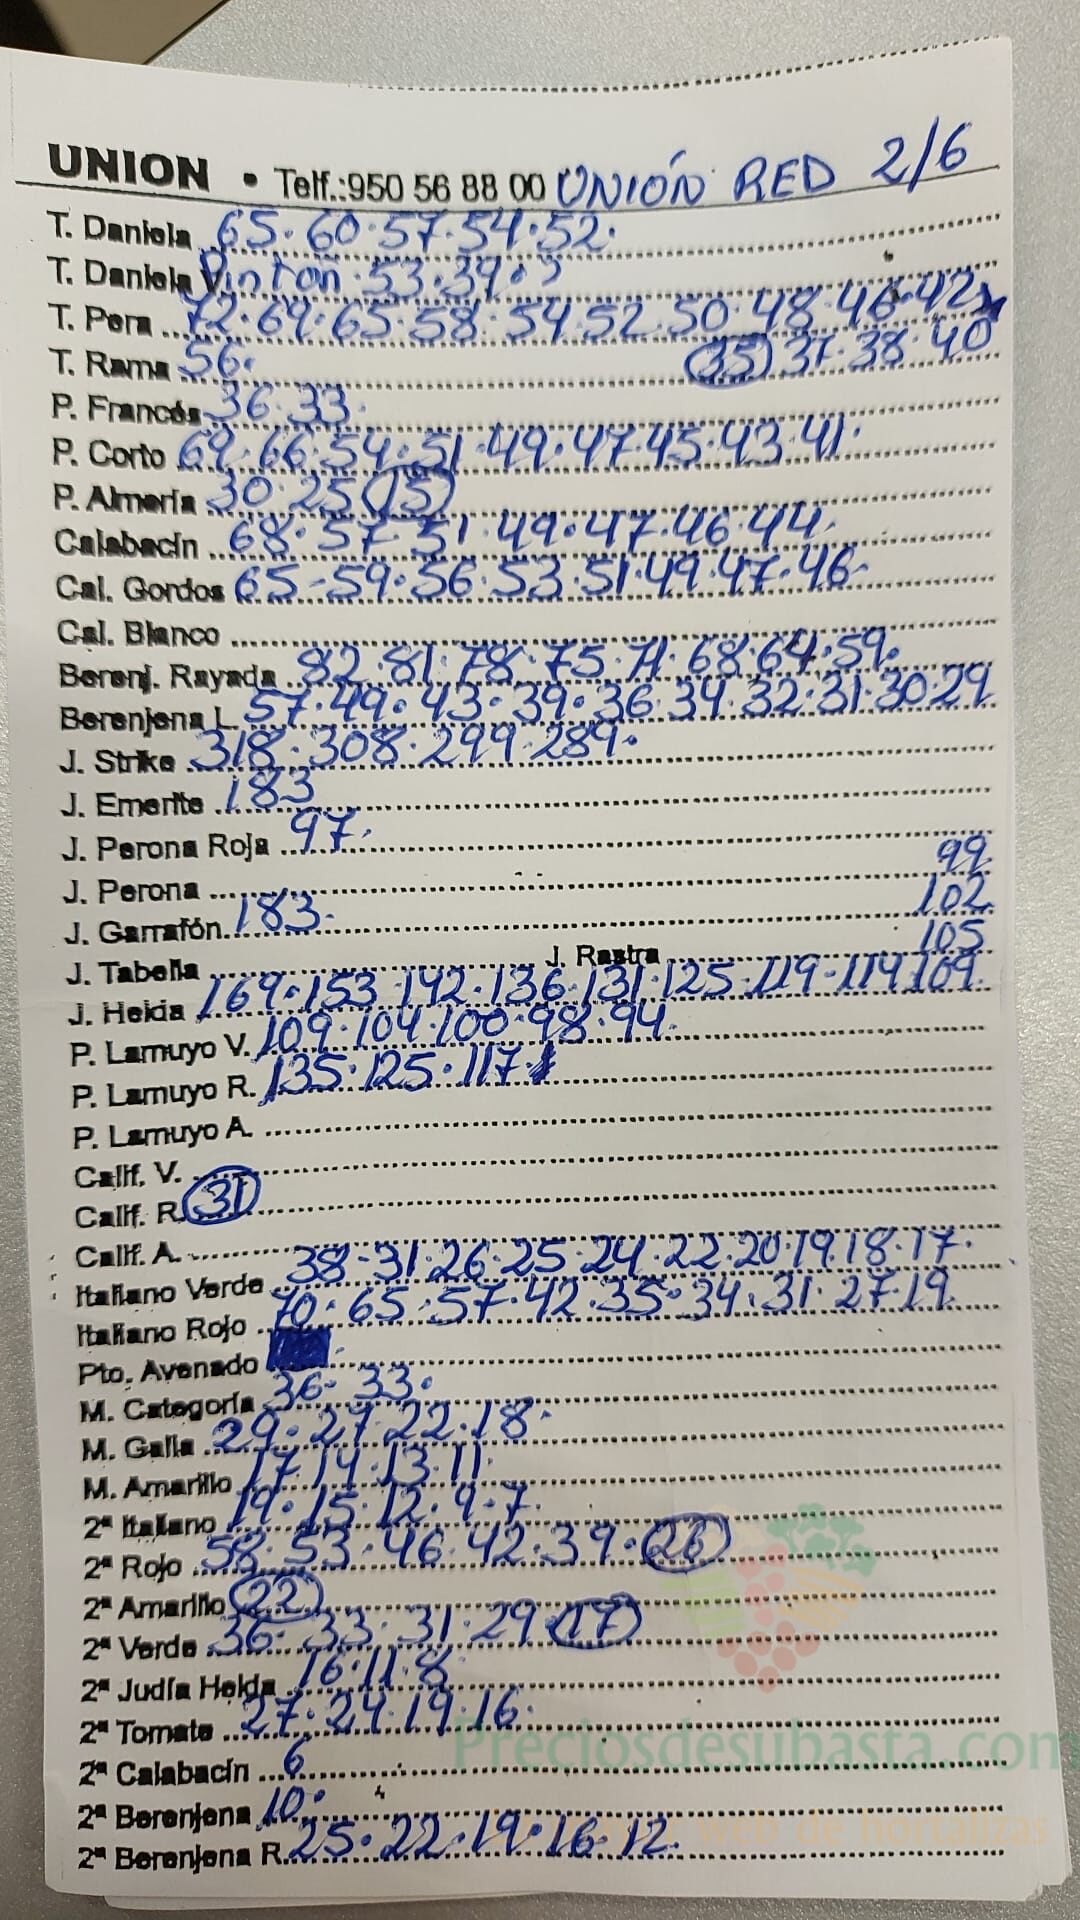 UNION • Telf.:950 56 88 00 UNIÓN RED 2/6
T. Daniela 65. 60. 57. 54. 52.
T. Daniela V. Pintón. 53. 39.
T. Pera 72. 69. 65. 58. 54. 52. 50. 48. 46. 42
T. Rama 56. (35) 37. 38. 40
P. Francés 36. 33.
P. Corto 69. 66. 54. 51. 49. 47. 45. 43. 41.
P. Almería 30. 25 (15)
Calabacín 68. 57. 51. 49. 47. 46. 44.
Cal. Gordos 65 - 59. 56. 53. 51. 49. 47. 46.
Cal. Blanco
Berenj. Rayada 82. 81. 78. 75. 71. 68. 64. 59.
Berenjena L. 57. 49. 43. 39. 36. 34. 32. 31. 30. 29
J. Strike 318. 308. 299. 289.
J. Emerite 183
J. Perona Roja 97.
J. Perona 99
J. Garrafón 183. 102
J. Tabella J. Rastra 105
J. Helda 169. 153. 142. 136. 131. 125. 119. 114 109
P. Lamuyo V. 109. 104. 100. 98. 94.
P. Lamuyo R. 135. 125. 117.
P. Lamuyo A.
Calif. V.
Calif. R. (31)
Calif. A.
Italiano Verde 38 - 31. 26. 25. 24. 22. 20. 19. 18. 17.
Italiano Rojo 70. 65. 57. 42. 35. 34. 31. 27. 19.
Pto. Avenado
M. Categoría 36. 33.
M. Galia 29. 27. 22. 18.
M. Amarillo 17. 14. 13. 11.
2ª Italiano 19. 15. 12. 9. 7.
2ª Rojo 58. 53. 46. 42. 39. (26)
2ª Amarillo (22)
2ª Verde 36. 33. 31. 29. (17)
2ª Judía Helda 16. 11. 8.
2ª Tomate 27. 24. 19. 16.
Preciosdesubasta.com
2ª Calabacín 6
2ª Berenjena 10.
web de hortalizas
2ª Berenjena R. 25. 22. 19. 16. 12.